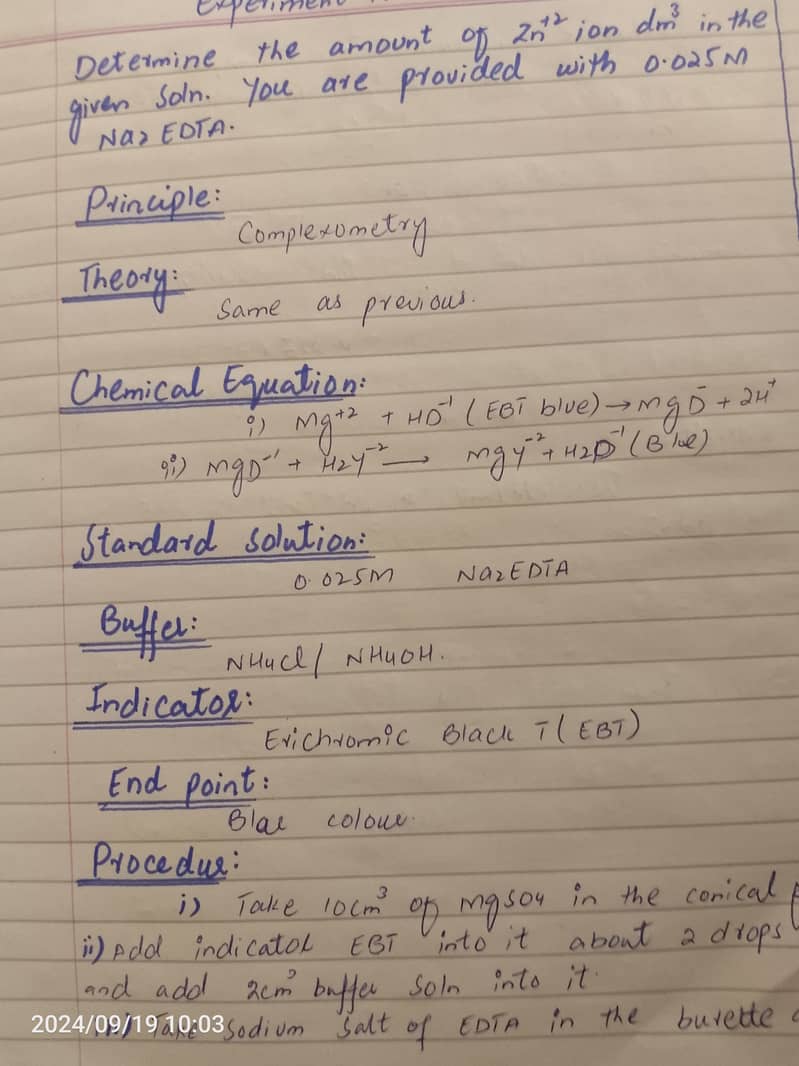 Experiment
Determine the amount of Zn⁺² ion dm³ in the
given Soln. You are provided with 0.025M
Na2 EDTA.
Principle:
Complexometry
Theory:
Same as previous.
Chemical Equation:
i) Mg⁺² + HD⁻¹ (EBT blue) → MgD⁻ + 2H⁺
ii) MgD⁻¹ + H2Y⁻² → MgY⁻² + H2D⁻¹ (Blue)
Standard solution:
0.025M Na2EDTA
Buffer:
NH4Cl / NH4OH.
Indicator:
Erichromic Black T (EBT)
End point:
Blae colour.
Procedur:
i) Take 10cm³ of MgSO4 in the conical
ii) Add indicator EBT into it about 2 drops
and add 2cm³ buffer Soln into it.
2024/09/19 10:03
Take Sodium Salt of EDTA in the burette